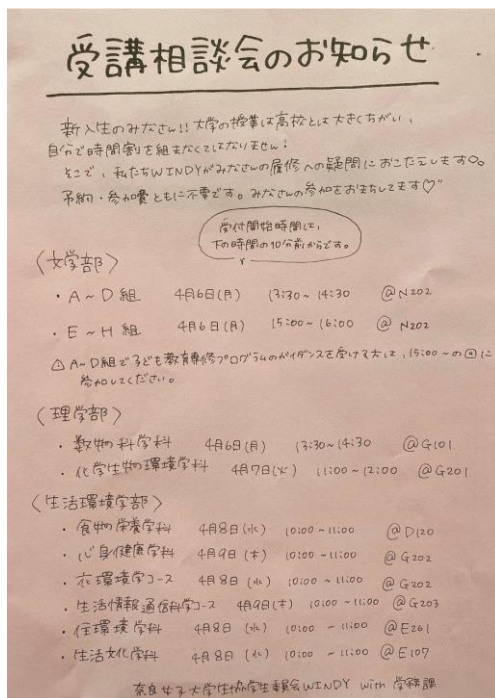 受講相談会のお知らせ
新入生のみなさん!! 大学の授業は高校とは大きくちがい、
自分で時間割を組まなくてはなりません!
そこで、私たちWINDYがみなさんの履修への疑問におこたえします♡。
予約・参加費ともに不要です。みなさんの参加をおまちしてます♡
受付開始時間は、
下の時間の10分前からです。
〈文学部〉
・A~D組 4月6日(月) 13:30~14:30 @N202
・E~H組 4月6日(月) 15:00~16:00 @N202
⚠A~D組で子ども教育専修プログラムのガイダンスを受ける方は、15:00~の回に
参加してください。
〈理学部〉
・数物科学科 4月6日(月) 13:30~14:30 @G101
・化学生物環境学科 4月7日(火) 11:00~12:00 @G201
〈生活環境学部〉
・食物栄養学科 4月8日(水) 10:00~11:00 @D120
・心身健康学科 4月9日(木) 10:00~11:00 @G202
・衣環境学コース 4月8日(水) 10:00~11:00 @G202
・生活情報通信科学コース 4月9日(木) 10:00~11:00 @G203
・住環境学科 4月8日(水) 10:00~11:00 @E261
・生活文化学科 4月8日(水) 10:00~11:00 @E107
奈良女子大学生協学生委員会WINDY with 学務課